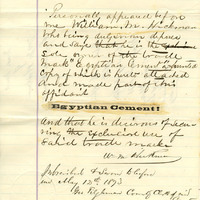 Personally appeared before
me William M. Hickman
who being duly sworn deposes
and says that he is the
sole owner of the trade
mark Egyptian Cement a printed
copy of which is hereto attached
and made part of this
affidavit
Egyptian Cement!
And that he is desirous of secur-
ing the exclusive use of
said trade mark
W. M. Hickman
Subscribed & sworn before
me May 12th 1873
Geo.